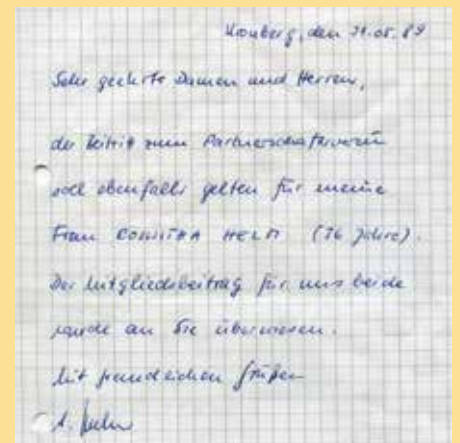 Kronberg, den 31.05.89
Sehr geehrte Damen und Herren,
der Beitritt zum Partnerschaftsverein
soll ebenfalls gelten für meine
Frau HELM (36 Jahre).
Der Mitgliedsbeitrag für uns beide
wurde an Sie überwiesen.
Mit freundlichen Grüßen